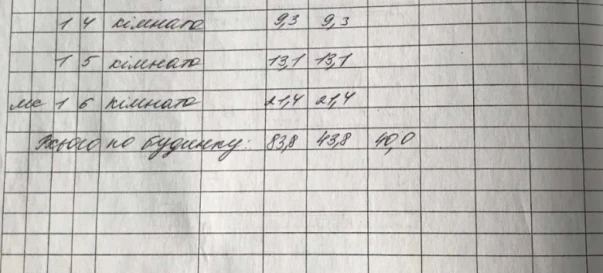 1 4 кімната 9,3 9,3
1 5 кімната 13,1 13,1
1 6 кімната 21,4 21,4
Усього по будинку: 83,8 43,8 40,0